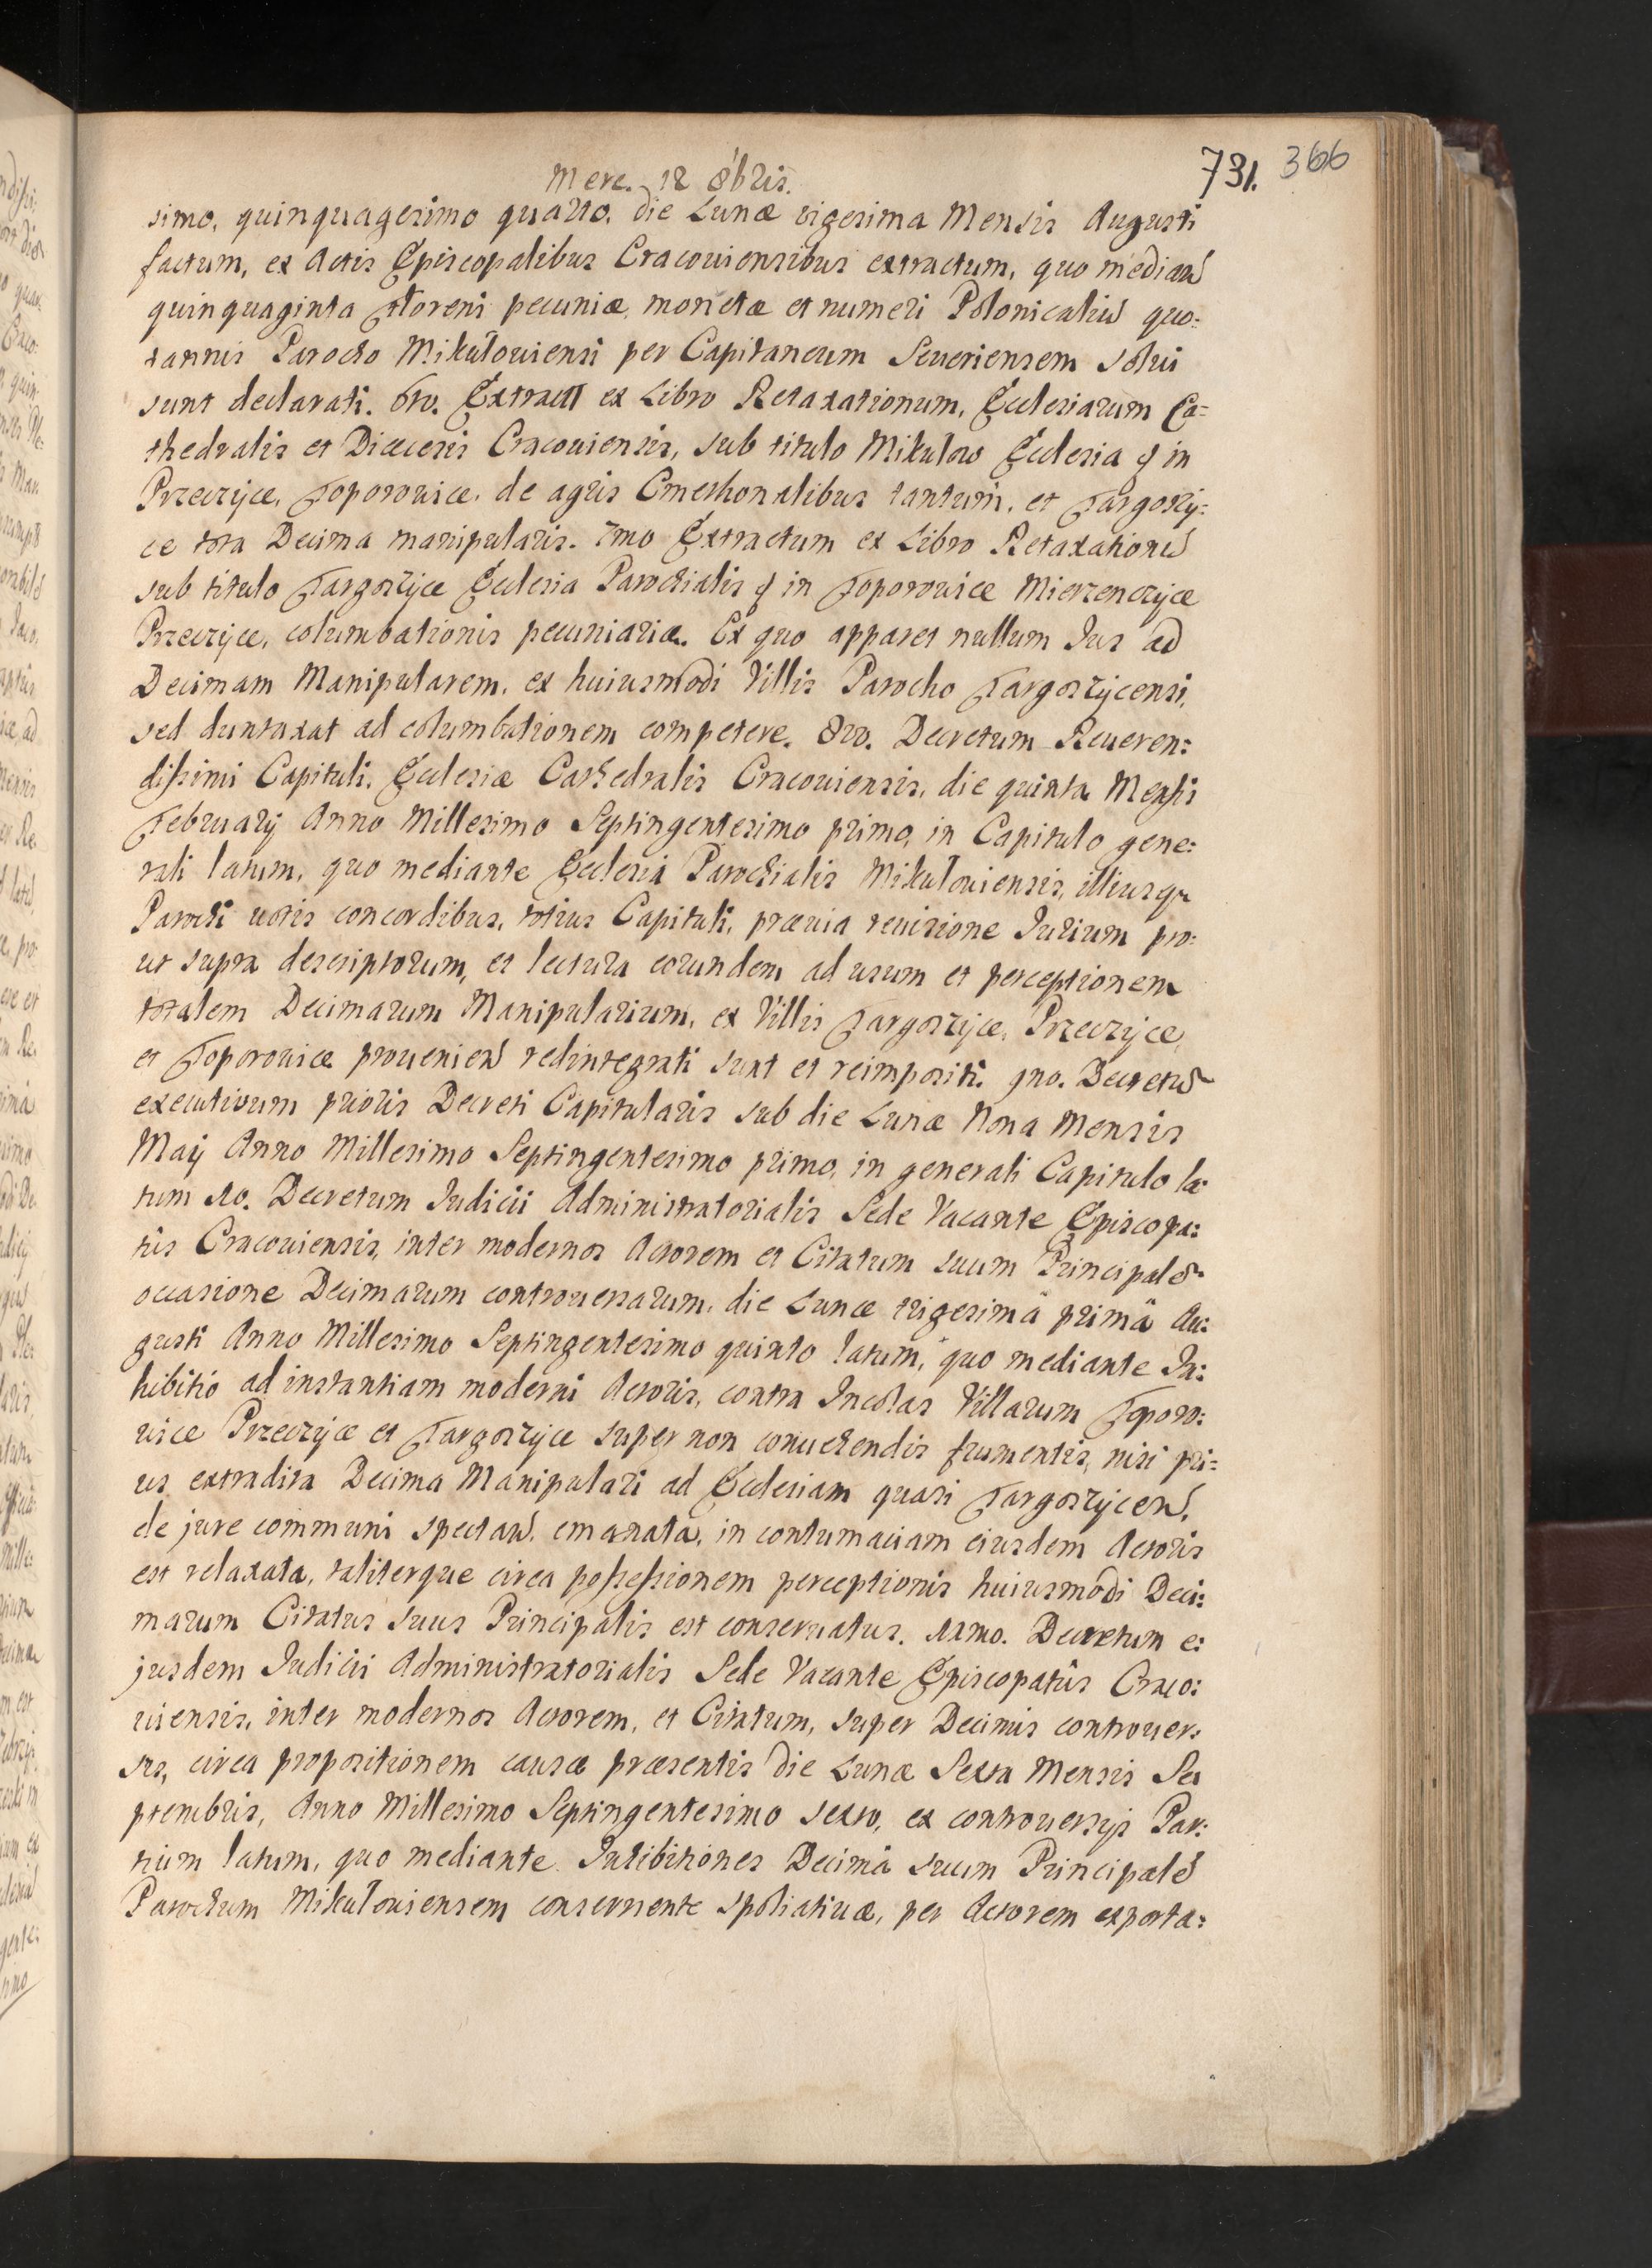 Merc. 12 8bris.
731. 366
simo, quinquagesimo quarto, die Lunæ vigesima Mensis Augusti
factum, ex Actis Episcopalibus Cracouiensibus extractum, quo median̄
quinquaginta Floreni pecuniæ, monetæ et numeri Polonicaliū quo:
tannis Parocho Mikułouiensi per Capitaneum Seueriensem solui
sunt declarati. 6to. Extract ex Libro Retaxationum, Ecclesiarum Ca=
thedralis et Diœcesis Cracouiensis, sub titulo Mikułow Ecclesia in
Przeczyce, Toporowice, de agris Cmethonalibus tantum, et Targoszy:
ce tota Decima manipularis. 7mo Extractum ex Libro Retaxationū
sub titulo Targoszyce Ecclesia Parochialis in Toporowice Mierzenczyce
Przeczyce, columbationis pecuniariæ. Ex quo apparet nullum Jus ad
Decimam Manipularem, ex huiusmodi Villis Parocho Targoszycensi,
sed duntaxat ad columbationem competere. 8vo. Decretum Reueren:
dissimi Capituli, Ecclesiæ Cathedralis Cracouiensis, die quinta Mensis
February Anno Millesimo Septingentesimo primo, in Capitulo gene:
rali latum, quo mediante Ecclesia Parochialis Mikułouiensis, illiusq̄
Parochi uotis concordibus, totius Capituli, præuia reuisione Jurium pro:
ut supra descriptorum, et lectura eorundem ad usum et perceptionem
totalem Decimarum Manipularium, ex Villis Targoszyce, Przeczyce,
et Toporowice prouenien̄ redintegrati sunt et reimpositi. 9no. Decretū
executivum prioris Decreti Capitularis sub die Lunæ Nona Mensis
Maij Anno Millesimo Septingentesimo primo, in generali Capitulo la:
tum 10. Decretum Judicii Administratorialis Sede Vacante Episcopa:
tûs Cracouiensis, inter modernos Actorem et Citatum suum Principalē
occasione Decimarum controuersarum, die Lunæ trigesimâ primâ Au:
gusti Anno Millesimo Septingentesimo quinto latum, quo mediante In:
hibitio ad instantiam moderni Actoris, contra Incolas Villarum Toporo:
wice Przeczyce et Targoszyce super non conuehendis frumentis, nisi pri=
us extradita Decima Manipulari ad Ecclesiam quasi Targoszycen̄,
de jure communi spectan̄, emanata, in contumaciam eiusdem Actoris
est relaxata, taliterque circa possessionem perceptionis huiusmodi Deci:
marum Citatus suus Principalis est conseruatus. 11mo. Decretum e:
jusdem Judicii Administratorialis Sede Vacante Episcopatûs Craco:
uiensis, inter modernos Actorem, et Citatum, super Decimis controuer:
sis, circa propositionem causæ præsentis die Lunæ Sexta Mensis Se
ptembris, Anno Millesimo Septingentesimo sexto, ex controuersijs Par:
tium latum, quo mediante Inhibitiones Decimâ suum Principalē
Parochum Mikułouiensem conseruente spoliatiuæ, per Actorem exporta: